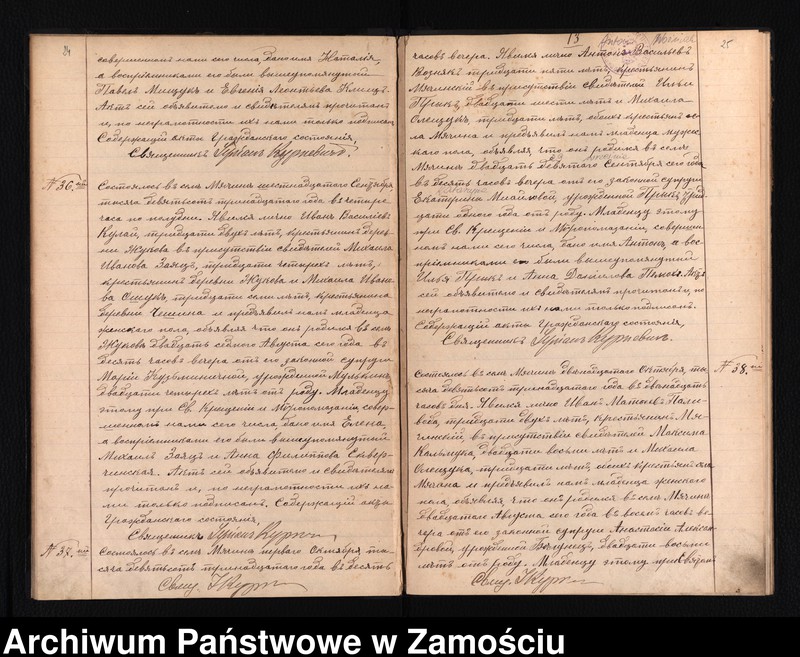 24
совершенномъ нами сего числа, дано имя Наталія,
а воспріемниками его были вышеупомянутый
Павелъ Мищукъ и Евгенія Леонтьева
Актъ сей объявителю и свидѣтелямъ прочитанъ
и, по неграмотности ихъ нами только подписанъ
Содержащій акты Гражданскаго состоянія,
Священникъ
№ 36.
Состоялось въ селѣ Мячинѣ шестнадцатого Сентября
тысяча девятьсотъ тринадцатаго года въ четыре
часа по полудни. Явился лично Иванъ Васильевъ
Кулай, тридцати двухъ лѣтъ, крестьянинъ дерев-
ни Жукова въ присутствіи свидѣтелей Михаила
Иванова Заяцъ, тридцати четырехъ лѣтъ,
крестьянинъ деревни Жукова и Михаила Ивано-
ва тридцати семи лѣтъ, крестьянина
деревни и предъявилъ намъ младенца
женскаго пола, объявляя что онъ родился въ селѣ
Жуковѣ двадцать седьмого Августа сего года въ
десять часовъ вечера отъ его законной супруги
Маріи урожденной
двадцати четырехъ лѣтъ отъ роду. Младенцу
этому при Св. Крещеніи и Мѵропомазаніи, совер-
шенномъ нами сего числа, дано имя Елена,
а воспріемниками его были вышеупомянутый
Михаилъ Заяцъ и Анна Филиппова
Актъ сей объявителю и свидѣтелямъ
прочитанъ и, по неграмотности ихъ на-
ми только подписанъ. Содержащій акты
Гражданскаго состоянія,
Священникъ
№ 37.
Состоялось въ селѣ Мячинѣ перваго Октября ты-
сяча девятьсотъ тринадцатаго года въ десять
Свящ.
13
25
часовъ вечера. Явился лично Антонъ Васильевъ
Вознякъ тридцати пяти лѣтъ, крестьянинъ
въ присутствіи свидѣтелей Ильи
двадцати шести лѣтъ и Михаила
Олещукъ, тридцати лѣтъ, обоихъ крестьянъ се-
ла Мячина и предъявилъ намъ младенца мужес-
каго пола, объявляя что онъ родился въ селѣ
Мячинѣ двадцать девятаго Сентября сего года
въ десять часовъ вечера отъ его законной супруги
Екатерины урожденной трид-
цати одного года отъ роду. Младенцу этому
при Св. Крещеніи и Мѵропомазаніи, совершен-
номъ нами сего числа, дано имя Антонъ, а вос-
пріемниками его были вышеупомянутый
Илья и Анна Данилова Актъ
сей объявителю и свидѣтелямъ прочитанъ и, по
неграмотности ихъ нами только подписанъ.
Содержащій акты Гражданскаго состоянія,
Священникъ
№ 38.
Состоялось въ селѣ Мячинѣ двѣнадцатаго Октября, ты-
сяча девятьсотъ тринадцатаго года въ двѣнадцать
часовъ дня. Явился лично Иванъ
тридцати двухъ лѣтъ, крестьянинъ
въ присутствіи свидѣтелей Максима
двадцати восьми лѣтъ и Михаила
Олещука, тридцати лѣтъ, обоихъ крестьянъ села
Мячина и предъявилъ намъ младенца женскаго
пола, объявляя, что онъ родился въ селѣ Мячинѣ
двадцатаго Августа сего года въ восемь часовъ ве-
чера отъ его законной супруги Анастасіи Алексан-
дровой, урожденной двадцати восьми
лѣтъ отъ роду. Младенцу этому при Св.
Свящ.
Archiwum Państwowe w Zamościu